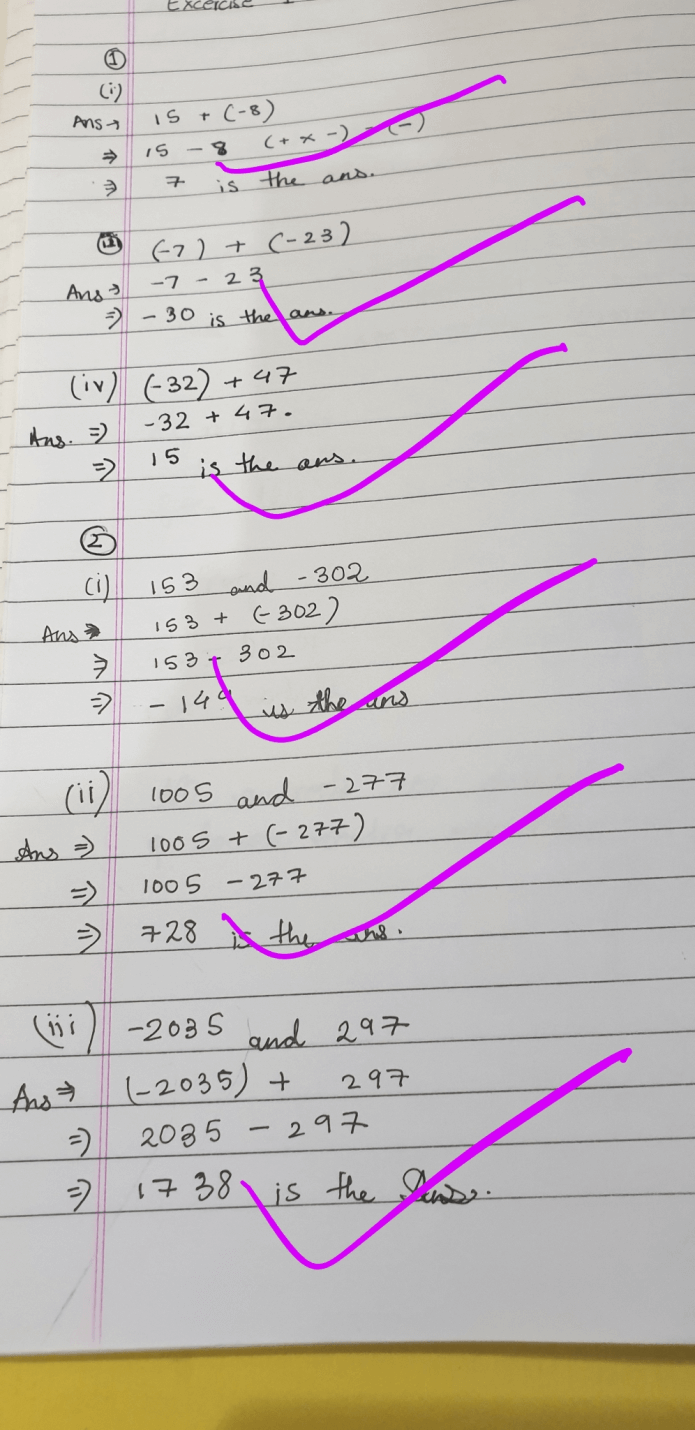 Excercise
①
(i)
Ans → 15 + (-8)
⇒ 15 - 8 (+ × -) = (-)
⇒ 7 is the ans.
(-7) + (-23)
Ans → -7 - 23
⇒ -30 is the ans.
(iv) (-32) + 47
Ans. ⇒ -32 + 47.
⇒ 15 is the ans.
②
(i) 153 and -302
Ans → 153 + (-302)
⇒ 153 - 302
⇒ -149 is the ans
(ii) 1005 and -277
Ans ⇒ 1005 + (-277)
⇒ 1005 - 277
⇒ 728 is the ans.
(iii) -2035 and 297
Ans ⇒ (-2035) + 297
⇒ 2035 - 297
⇒ 1738 is the Ans.